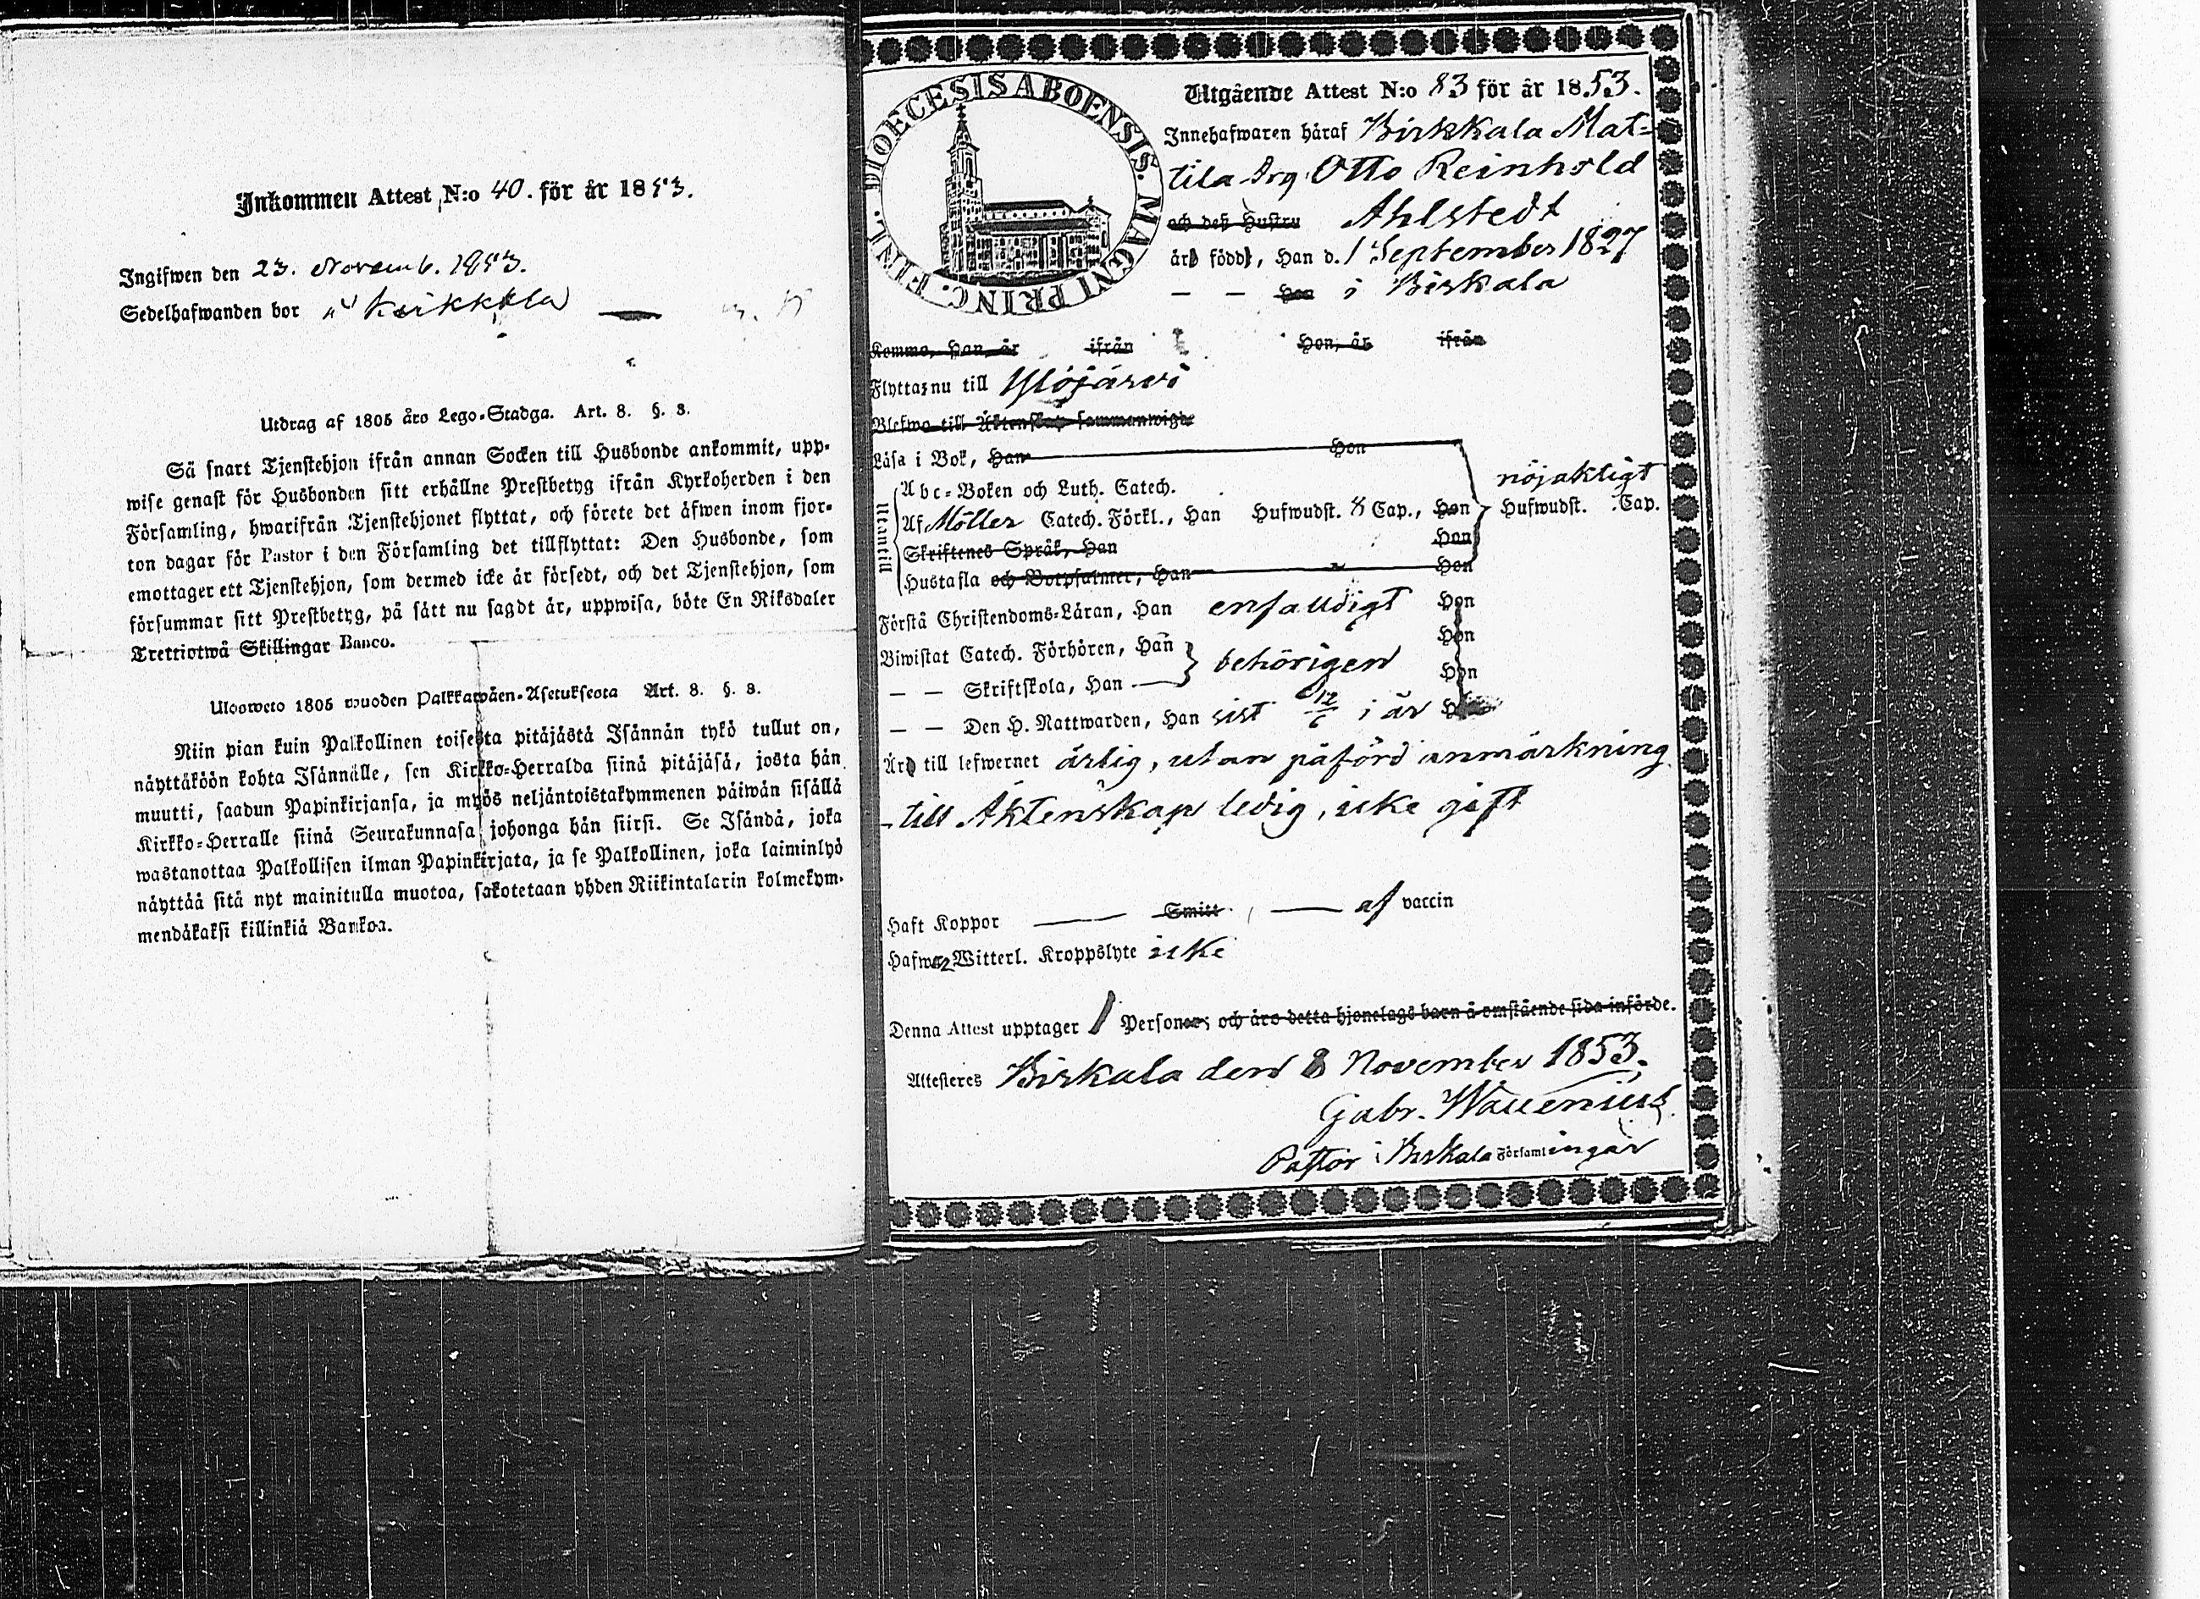 Inkommen Attest N:o 40. för år 1853.
Ingifwen den 23. Novemb. 1853.
Sedelhafwanden bor
Utdrag af 1805 års Lego-Stadga. Art. 8. §. 3.
Så snart Tjenstehjon ifrån annan Socken till Husbonde ankommit, upp-
wise genast för Husbonden sitt erhållne Prestbetyg ifrån Kyrkoherden i den
Församling, hwarifrån Tjenstehjonet flyttat, och förete det äfwen inom fjor-
ton dagar för Pastor i den Församling det tillflyttat: Den Husbonde, som
emottager ett Tjenstehjon, som dermed icke är försedt, och det Tjenstehjon, som
försummar sitt Prestbetyg, på sätt nu sagdt är, uppwisa, böte En Riksdaler
Trettiotwå Skillingar Banco.
Ulosweto 1805 wuoden Palkkawäen-Asetuksesta Art. 8. §. 3.
Niin pian kuin Palkollinen toisesta pitäjästä Isännän tykö tullut on,
näyttäköön kohta Isännälle, sen Kirkko-Herralda siinä pitäjäsä, josta hän
muutti, saadun Papinkirjansa, ja myös neljäntoistakymmenen päiwän sisällä
Kirkko-Herralle siinä Seurakunnasa johonga hän siirsi. Se Isändä, joka
wastanottaa Palkollisen ilman Papinkirjata, ja se Palkollinen, joka laiminlyö
näyttää sitä nyt mainitulla muotoa, sakotetaan yhden Riikintalarin kolmekym-
mendäkaksi killinkiä Bankoa.
DIOECESIS ABOENSIS. MAGNI PRINC. FINL.
Utgående Attest N:o 83 för år 1853.
Innehafwaren häraf Birkkala Mat-
tila Drg. Otto Reinhold
och deß Hustru Ahlstedt
är född, Han d. 1 September 1827
— — Hon i Birkala
Kommo, Han, år ifrån Hon, år ifrån
Flyttar nu till Ylöjärvi
Blefwo till Äktenskap sammanwigde
Läsa i Bok, Han Hon
Utantill
Abc-Boken och Luth. Catech.
nöjaktigt
Af Möller Catech. Förkl., Han Hufwudst. Cap., Hon Hufwudst. Cap.
Skriftenes Språk, Han Hon
Hustafla och Botpsalmer, Han Hon
Förstå Christendoms-Läran, Han enfaldigt Hon
Biwistat Catech. Förhören, Han behörigen Hon
— — Skriftskola, Han Hon
— — Den H. Nattwarden, Han sist 12/6 i år
Är till lefwernet ärlig, utan påförd anmärkning
till Äktenskap ledig, icke gift
Haft Koppor — Smitt — af vaccin
Hafwer Witterl. Kroppslyte icke
Denna Attest upptager 1 Personer; och äro detta hjonelags barn å omstående sida införde.
Attesteres Birkala den 8 November 1853.
Gabr. Wallenius
Pastor i Birkala Församlingar